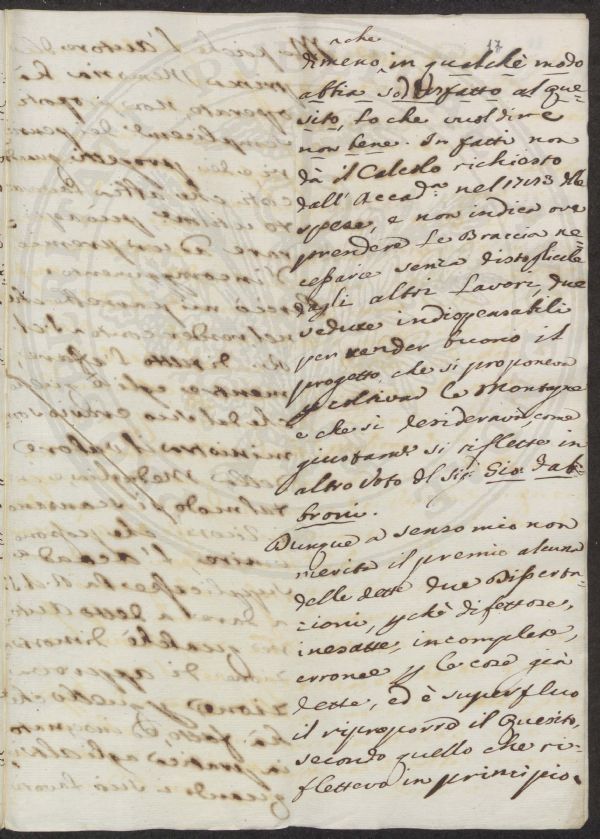 17
che
dimeno, in qualchè modo
abbia sodisfatto al que-
sito, Lo che vuol dire
non bene. In fatti non
dà il Calcolo richiesto
dall'Accad.a nel 1773 delle
spese, e non indica ove
prendere Le Braccia ne-
cessarie senza distoglierle
dagli altri Lavori, due
vedute indispensabili
per render buono il
progetto, che si proponeva
di coltivar le Montagne
e che si desideravan, come
giustam.e si riflette in
altro Voto del Sig.r Gio. Fab-
broni.
Dunque a senso mio non
merita il premio alcuna
delle dette due Disserta-
zioni, p chè difettose,
inesatte, incomplete,
erronee p le cose già
dette, ed è superfluo
il riproporre il Quesito,
secondo quello che ri-
fletteva in principio.